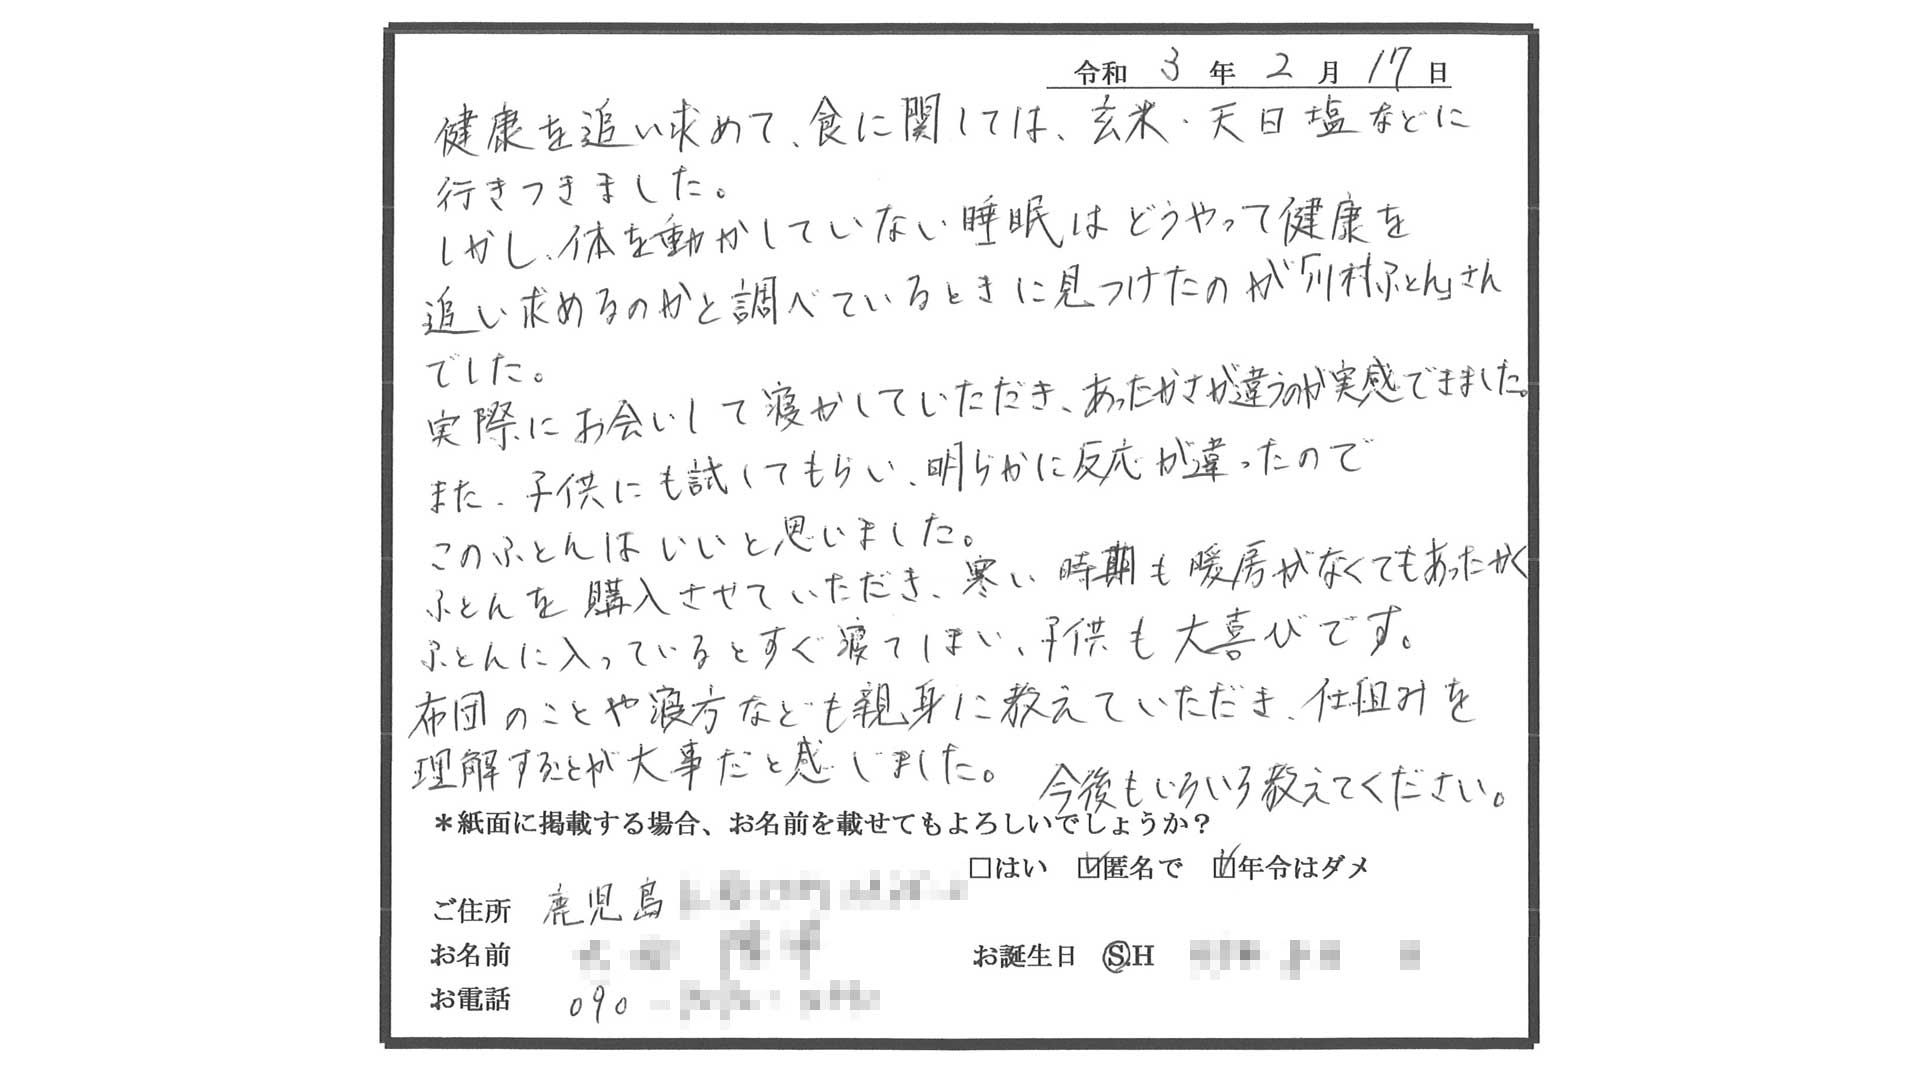 令和 3 年 2 月 17 日
健康を追い求めて、食に関しては、玄米・天日塩などに
行きつきました。
しかし、体を動かしていない睡眠はどうやって健康を
追い求めるのかと調べているときに見つけたのが「川村ふとん」さん
でした。
実際にお会いして寝かしていただき、あったかさが違うのが実感できました。
また、子供にも試してもらい、明らかに反応が違ったので
このふとんはいいと思いました。
ふとんを購入させていただき、寒い時期も暖房がなくてもあったかく
ふとんに入っているとすぐ寝てしまい、子供も大喜びです。
布団のことや寝方なども親身に教えていただき、仕組みを
理解することが大事だと感じました。 今後もいろいろ教えてください。
＊紙面に掲載する場合、お名前を載せてもよろしいでしょうか？
□はい ☑匿名で ☑年令はダメ
ご住所 鹿児島
お名前 お誕生日 S.H
お電話 090